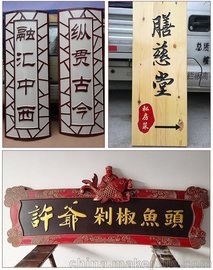 融汇中西
纵贯古今
膳慈堂
私房菜
許爺 剁椒魚頭
china.makepolo.com